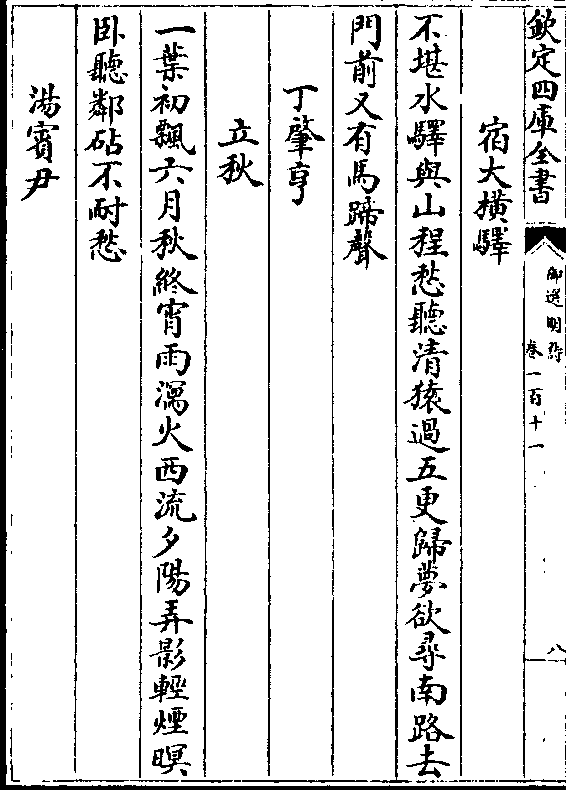 欽定四庫全書
御選明詩
卷一百十一
八
宿大橫驛
不堪水驛與山程愁聽清猿過五更歸夢欲尋南路去
門前又有馬蹄聲
丁肇亨
立秋
一葉初飄六月秋終宵雨濕火西流夕陽弄影輕煙暝
卧聽鄰砧不耐愁
湯賓尹